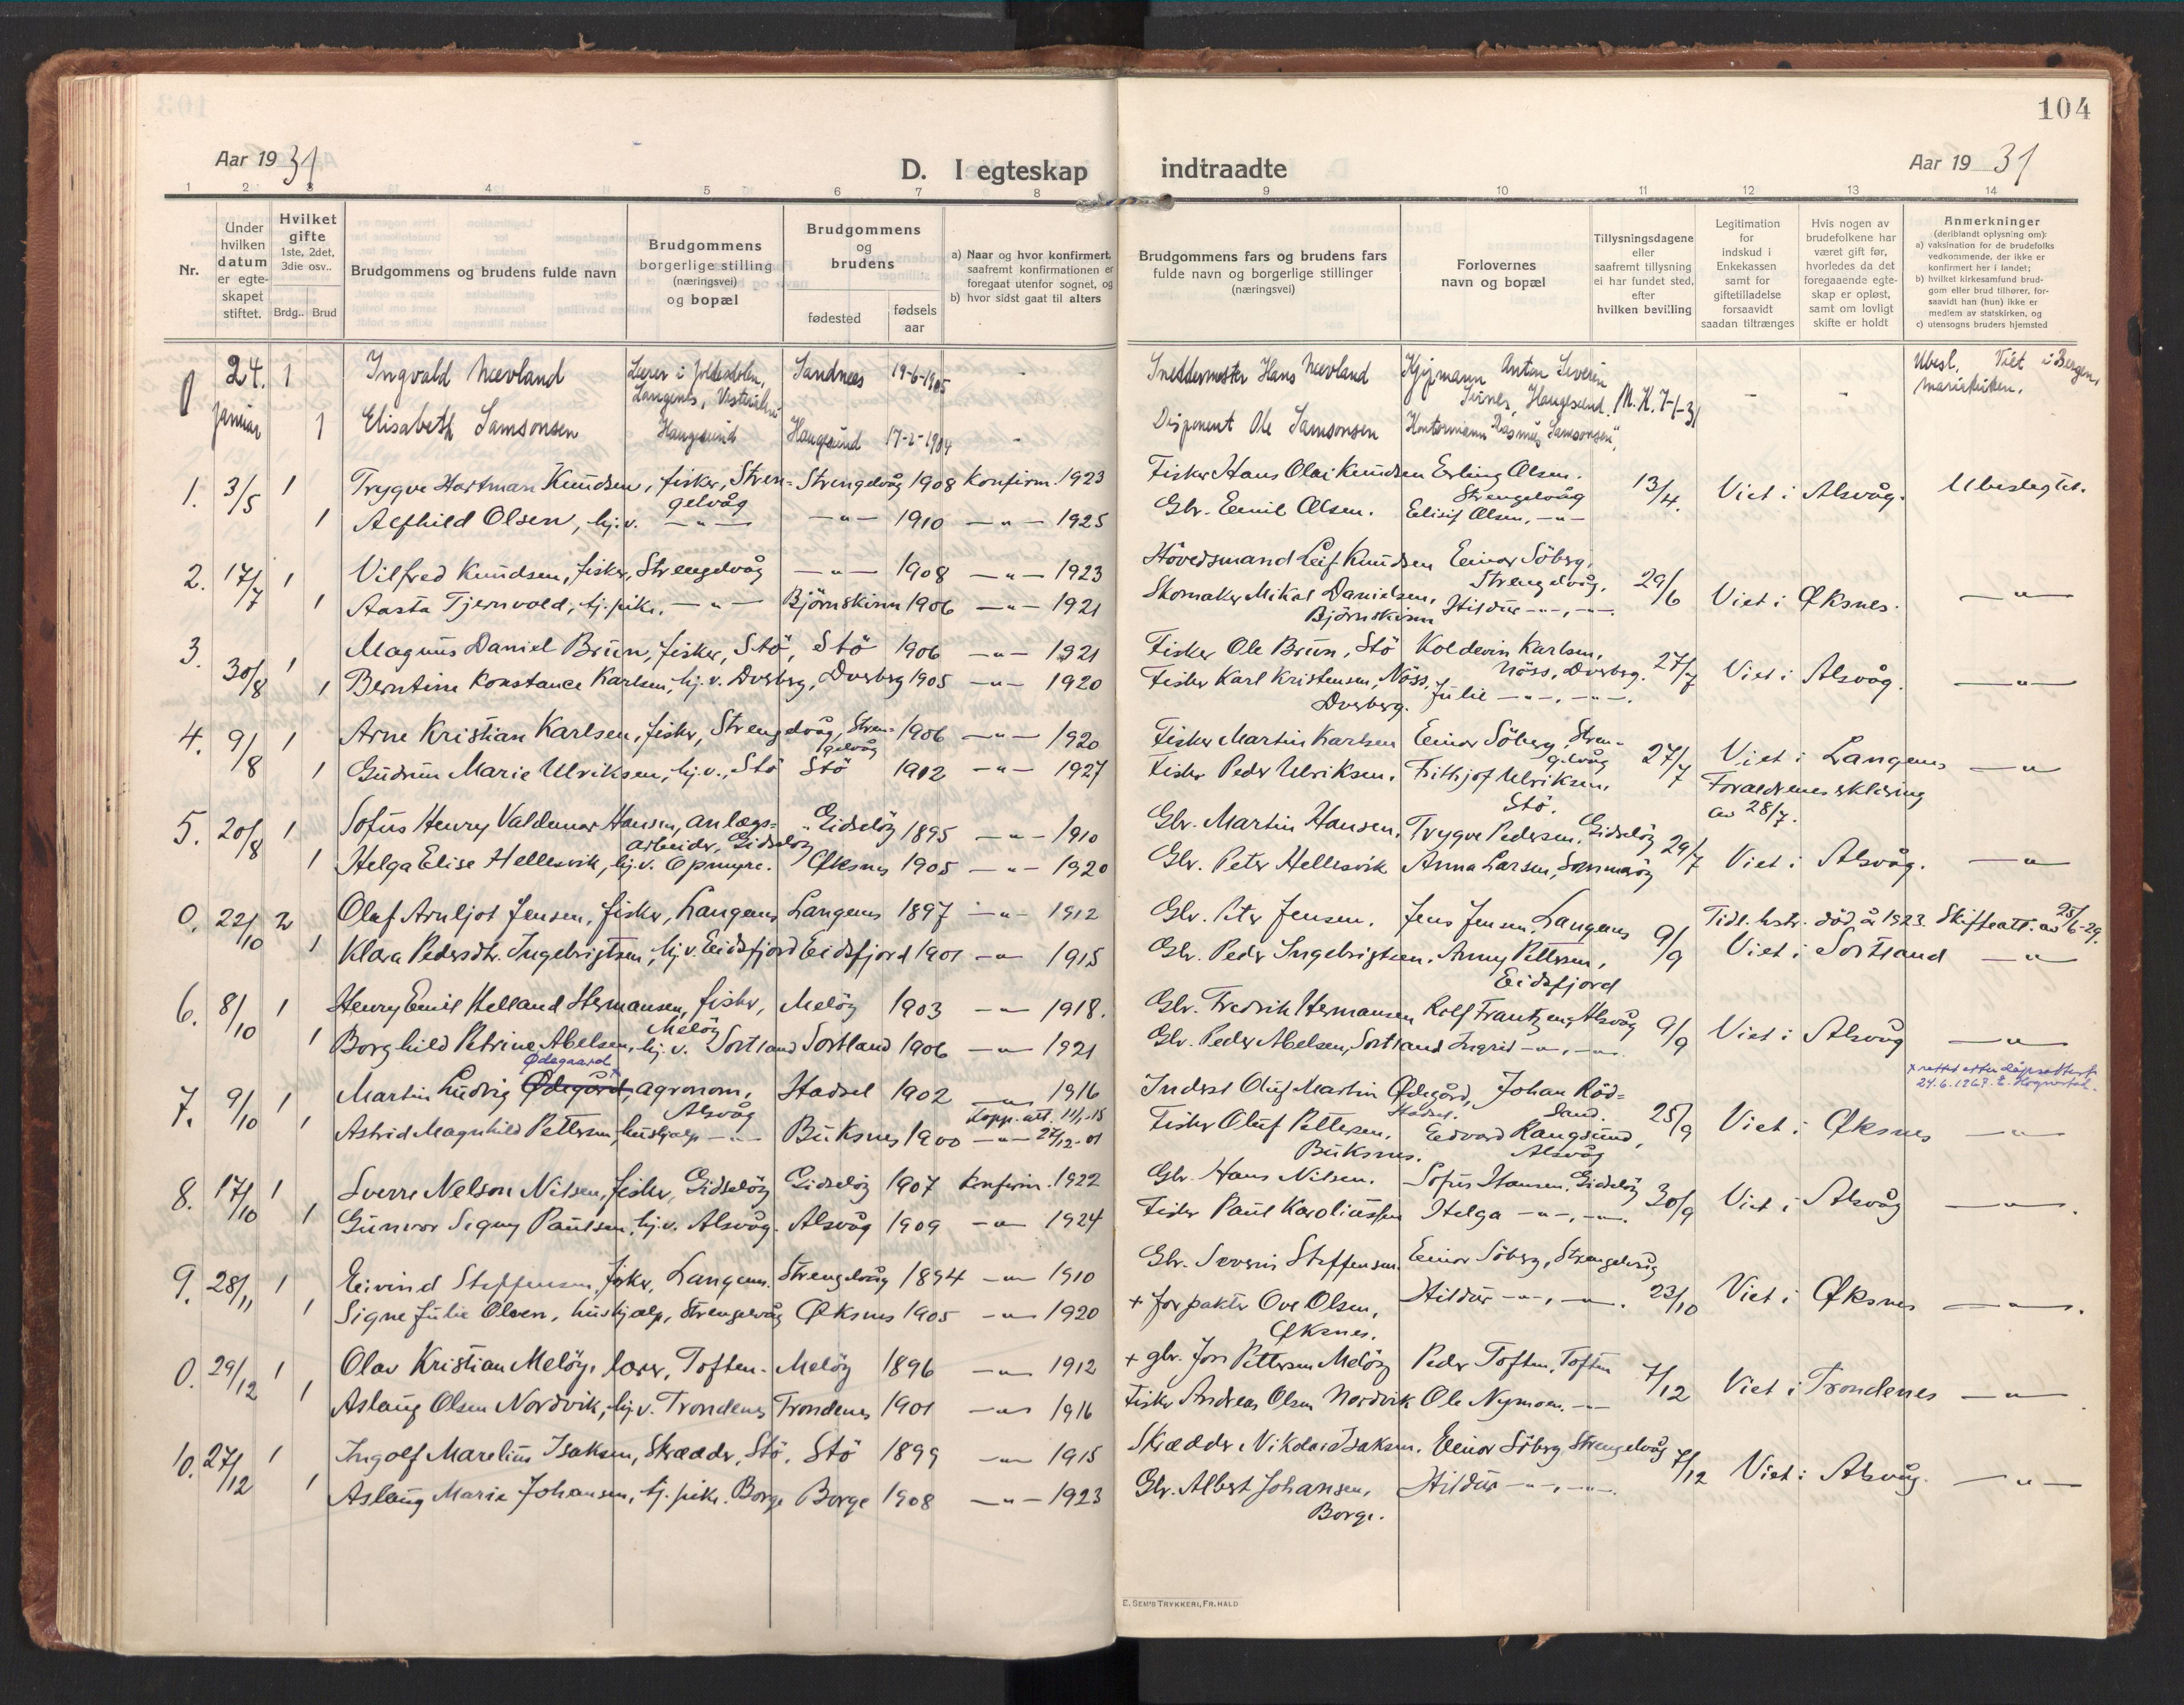 104
Aar 1931
D. I egteskap indtraadte
Aar 1931
1 2 3 4 5 6 7 8 9 10 11 12 13 14
Nr.
Under hvilken datum er egte- skapet stiftet.
Hvilket gifte 1ste, 2det, 3die osv..
Brdg.. Brud
Brudgommens og brudens fulde navn
Brudgommens borgerlige stilling (næringsvei) og bopæl
Brudgommens og brudens
fødested
fødsels aar
a) Naar og hvor konfirmert, saafremt konfirmationen er foregaat utenfor sognet, og
b) hvor sidst gaat til alters
Brudgommens fars og brudens fars fulde navn og borgerlige stillinger (næringsvei)
Forlovernes navn og bopæl
Tillysningsdagene eller saafremt tillysning ei har fundet sted, efter hvilken bevilling
Legitimation for indskud i Enkekassen samt for giftetilladelse forsaavidt saadan tiltrænges
Hvis nogen av brudefolkene har været gift før, hvorledes da det foregaaende egte- skap er opløst, samt om lovligt skifte er holdt
Anmerkninger (deriblandt oplysning om):
a) vaksination for de brudefolks vedkommende, der ikke er konfirmert her i landet;
b) hvilket kirkesamfund brud- gom eller brud tilhører, for- saavidt han (hun) ikke er medlem av statskirken, og
c) utensogns bruders hjemsted
0 24. 1 Ingvald Nævland Lærer i Langenes, Sandnes 19-6-1905 - Snedkermester Hans Nævland Anton Severin Haugesund. M.K. 7-1-31 - - Ubesl. Viet i Bergen, Mariakirken.
januar 1 Elisabeth Samsonsen Haugesund Haugesund 17-2-1904 - Disponent Ole Samsonsen Kontormann Rasmus Samsonsen
1. 3/5 1 Trygve Hartman Knudsen, fisker, Stren- gelvåg Strengelvåg 1908 Konfirm. 1923 Fisker Hans Olai Knudsen Erling Olsen, Strengelvåg 13/4. Viet i Alsvåg. Ubeslegtet.
1 Alfhild Olsen, hj.v. -"- -"- 1910 -"- 1925 Gbr. Emil Olsen. Elisif Olsen, -"-
2. 17/7 1 Vilfred Knudsen, fisker, Strengelvåg -"- 1908 -"- 1923 Hövedsmand Leif Knudsen Einar Söberg, Strengelvåg, 29/6 Viet i Øksnes. -"-
1 Aasta Tjernvold, tj.pike. -"- Björnskinn 1906 -"- 1921 Skomaker Mikal Danielsen, Björnskinn Hildur -"-, -"-.
3. 30/8 1 Magnus Daniel Brun, fisker, Stö, Stö 1906 -"- 1921 Fisker Ole Brun, Stö Koldevin Karlsen, Nöss, Dverberg. 27/7 Viet i Alsvåg. -"-
1 Berntine Konstance Karlsen, hj.v. Dverberg, Dverberg 1905 -"- 1920 Fisker Karl Kristensen, Nöss, Dverberg. Julie -"-, -"-.
4. 9/8 1 Arne Kristian Karlsen, fisker, Strengelvåg, Stren- gelvåg 1906 -"- 1920 Fisker Martin Karlsen Einar Söberg, Stren- gelvåg 27/7 Viet i Langenes -"-
1 Gudrun Marie Ulriksen, hj.v., Stö Stö 1912 -"- 1927 Fisker Peder Ulriksen. Frithjof Ulriksen, Stö. Foraldrenes erklæring av 28/7.
5. 20/8 1 Sofus Henry Valdemar Hansen, anlægs- arbeider, Gidselöy Gidselöy 1895 -"- 1910 Gbr. Martin Hansen. Trygve Pedersen, Gidselöy 29/7 Viet i Alsvåg. -"-
1 Helga Elise Hellesvik, hj.v. Opmyre. Øksnes 1905 -"- 1920 Gbr. Peter Hellesvik Anna Larsen, Sommaröy
0. 22/10 2 Olaf Arnljot Jensen, fisker, Langenes Langenes 1897 -"- 1912 Gbr. Peter Jensen. Jens Jensen, Langenes 9/9 Tidl. hstr. död år 1923. Skifteatt. av 25/6-29.
1 Klara Pedersdtr. Ingebrigtsen, hj.v. Eidsfjord Eidsfjord 1901 -"- 1915 Gbr. Peder Ingebrigtsen. Anny Pettersen, Eidsfjord Viet i Sortland -"-
6. 8/10 1 Henry Emil Helland Hermansen, fisker, Melöy Melöy 1903 -"- 1918. Gbr. Fredrik Hermansen Rolf Frantzen, Alsvåg 9/9 Viet i Alsvåg -"-
1 Borghild Petrine Abelsen, hj.v. Sortland Sortland 1906 -"- 1921 Gbr. Peder Abelsen, Sortland Ingrid -"-, -"-.
Ødegaard x
7. 9/10 1 Martin Ludvig Ødegård, agronom, Alsvåg Hadsel 1902 -"- 1916 Inderst Oluf Martin Ødegård, Hadsel. Johan Röd- Sand. 25/9 Viet i Øksnes -"-
x rettet etter dåpsattest 24.6.1967.
1 Astrid Magnhild Pettersen, hushjælp -"- Buksnes 1900 Kopp.att. 11/1-15 -"- 27/12-01 Fisker Oluf Pettersen, Buksnes. Edvard Rangsund, Alsvåg
8. 17/10 1 Sverre Nelson Nilsen, fisker, Gidselöy Gidselöy 1907 Konfirm. 1922 Gbr. Hans Nilsen. Sofus Hansen, Gidselöy 30/9 Viet i Alsvåg -"-.
1 Gunvor Signy Paulsen, hj.v. Alsvåg. Alsvåg 1909 -"- 1924 Fisker Paul Karoliussen Helga -"-, -"-.
9. 28/11 1 Eivind Steffensen, fisker, Langenes. Strengelvåg 1894 -"- 1910 Gbr. Severin Steffensen. Einar Söberg, Strengelvåg 23/10 Viet i Øksnes -"-.
1 Signe Julie Olsen, hushjælp, Strengelvåg Øksnes 1905 -"- 1920 + forpakter Ove Olsen, Øksnes. Hildur -"-, -"-.
0. 29/12 1 Olav Kristian Melöy, lærer, Toften. Melöy 1896 -"- 1912 + gbr. Jon Pettersen Melöy Peder Toften, Toften 7/12 Viet i Trondenes -"-
1 Aslaug Olsen Nordvik, hj.v. Trondenes Trondenes 1901 -"- 1916 Fisker Andreas Olsen Nordvik Ole Nymoen. -"-
10. 27/12 1 Ingolf Marelius Isaksen, Skrædder, Stö. Stö 1899 -"- 1915 Skrædder Nikolai Isaksen. Einar Söberg, Strengelvåg 7/12 Viet i Alsvåg. -"-
1 Aslaug Marie Johansen, tj.pike. Borge Borge 1908 -"- 1923 Gbr. Albert Johansen, Borge. Hildur -"-, -"-.
E. SEM'S TRYKKERI, FR. HALD